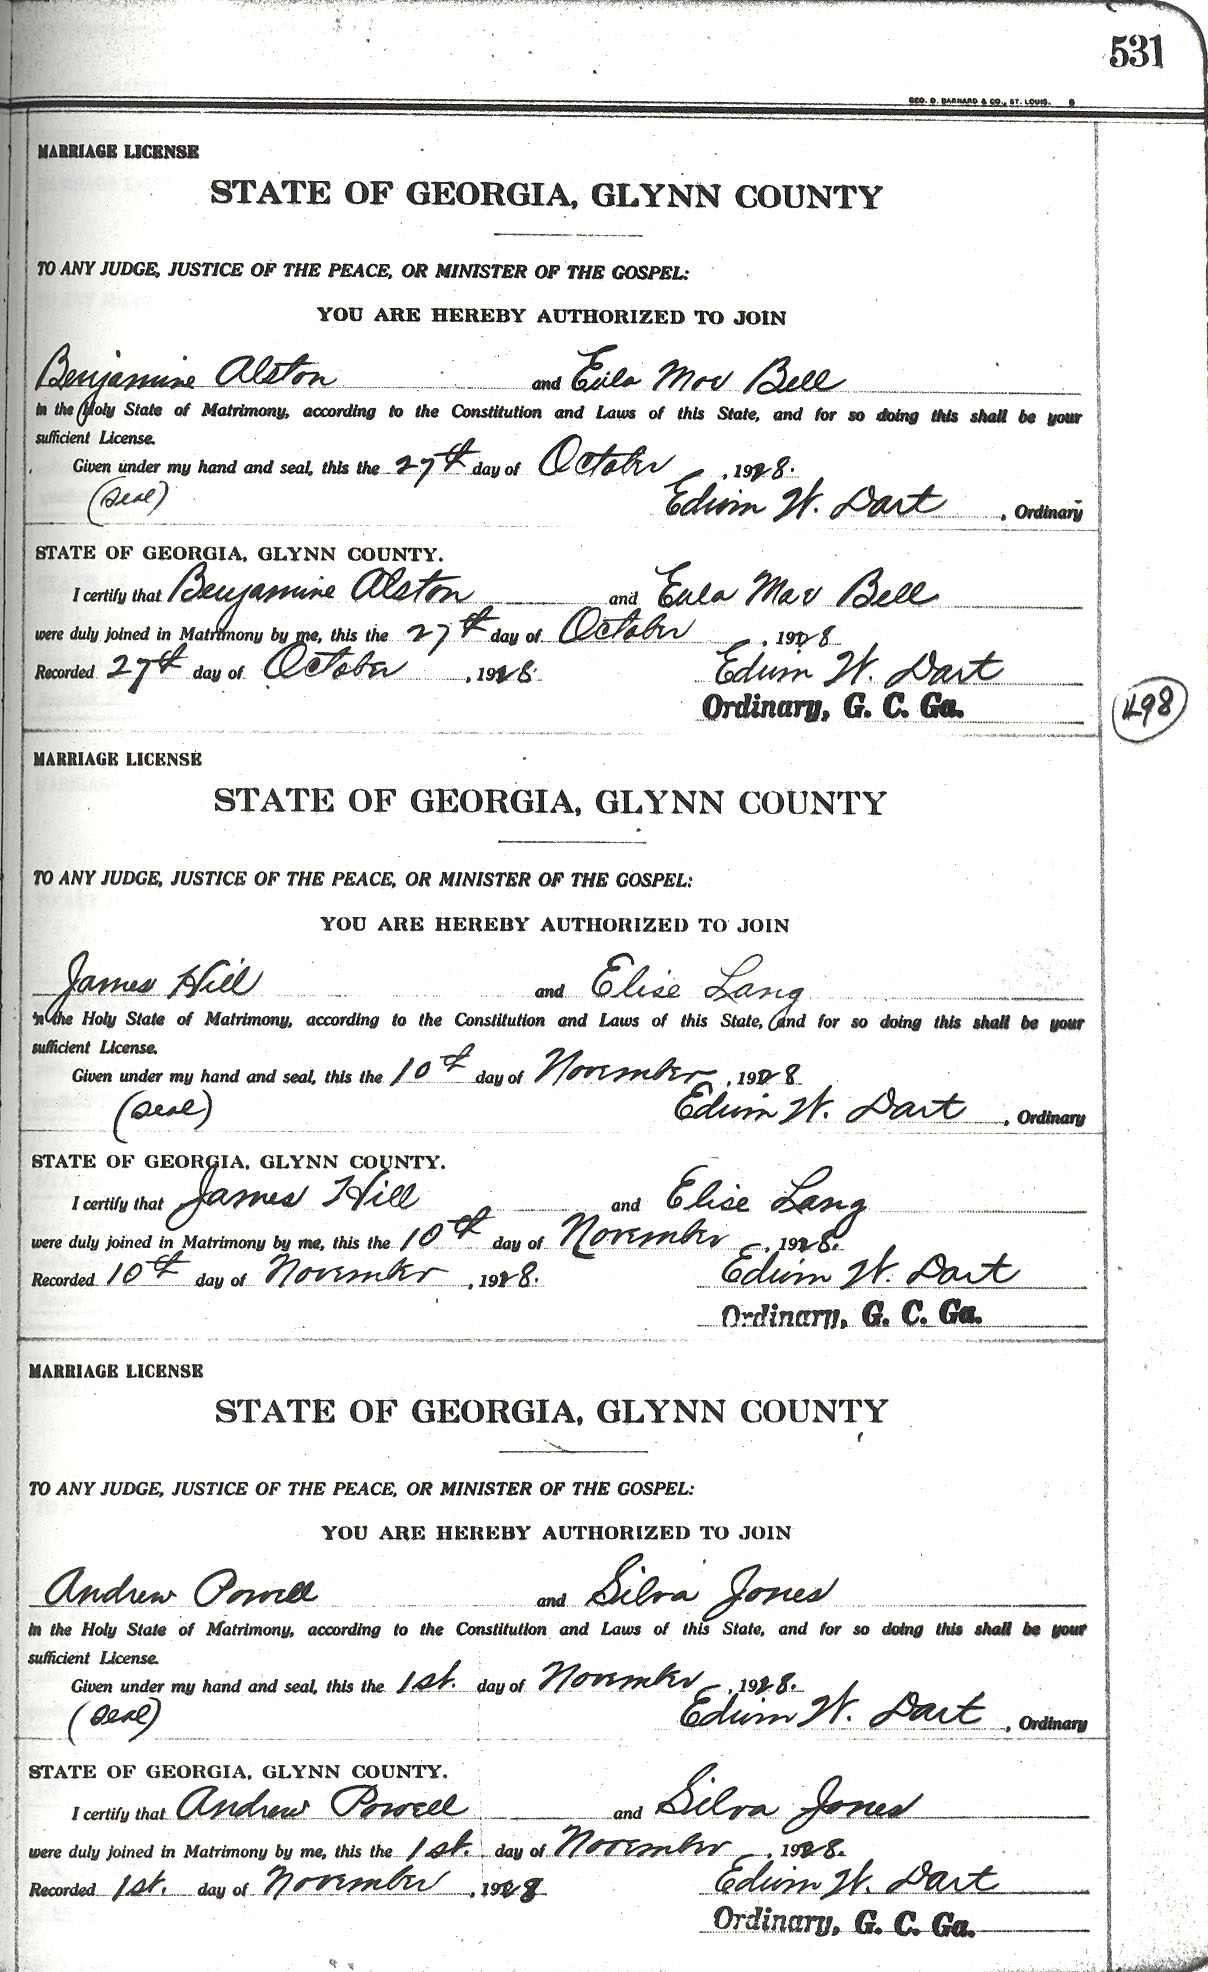 531
GEO. D. BARNARD & CO., ST. LOUIS. B
MARRIAGE LICENSE
STATE OF GEORGIA, GLYNN COUNTY
TO ANY JUDGE, JUSTICE OF THE PEACE, OR MINISTER OF THE GOSPEL:
YOU ARE HEREBY AUTHORIZED TO JOIN
Benjamine Alston and Eula Mae Bell
in the Holy State of Matrimony, according to the Constitution and Laws of this State, and for so doing this shall be your
sufficient License.
Given under my hand and seal, this the 27th day of October, 1928.
(Seal) Edwin W. Dart, Ordinary
STATE OF GEORGIA, GLYNN COUNTY.
I certify that Benjamine Alston and Eula Mae Bell
were duly joined in Matrimony by me, this the 27th day of October, 1928
Recorded 27th day of October, 1928. Edwin W. Dart
Ordinary, G. C. Ga.
498
MARRIAGE LICENSE
STATE OF GEORGIA, GLYNN COUNTY
TO ANY JUDGE, JUSTICE OF THE PEACE, OR MINISTER OF THE GOSPEL:
YOU ARE HEREBY AUTHORIZED TO JOIN
James Hill and Elise Lang
in the Holy State of Matrimony, according to the Constitution and Laws of this State, and for so doing this shall be your
sufficient License.
Given under my hand and seal, this the 10th day of November, 1928
(Seal) Edwin W. Dart, Ordinary
STATE OF GEORGIA, GLYNN COUNTY.
I certify that James Hill and Elise Lang
were duly joined in Matrimony by me, this the 10th day of November, 1928.
Recorded 10th day of November, 1928. Edwin W. Dart
Ordinary, G. C. Ga.
MARRIAGE LICENSE
STATE OF GEORGIA, GLYNN COUNTY
TO ANY JUDGE, JUSTICE OF THE PEACE, OR MINISTER OF THE GOSPEL:
YOU ARE HEREBY AUTHORIZED TO JOIN
Andrew Powell and Silva Jones
in the Holy State of Matrimony, according to the Constitution and Laws of this State, and for so doing this shall be your
sufficient License.
Given under my hand and seal, this the 1st. day of November, 1928.
(Seal) Edwin W. Dart, Ordinary
STATE OF GEORGIA, GLYNN COUNTY.
I certify that Andrew Powell and Silva Jones
were duly joined in Matrimony by me, this the 1st. day of November, 1928.
Recorded 1st. day of November, 1928 Edwin W. Dart
Ordinary, G. C. Ga.